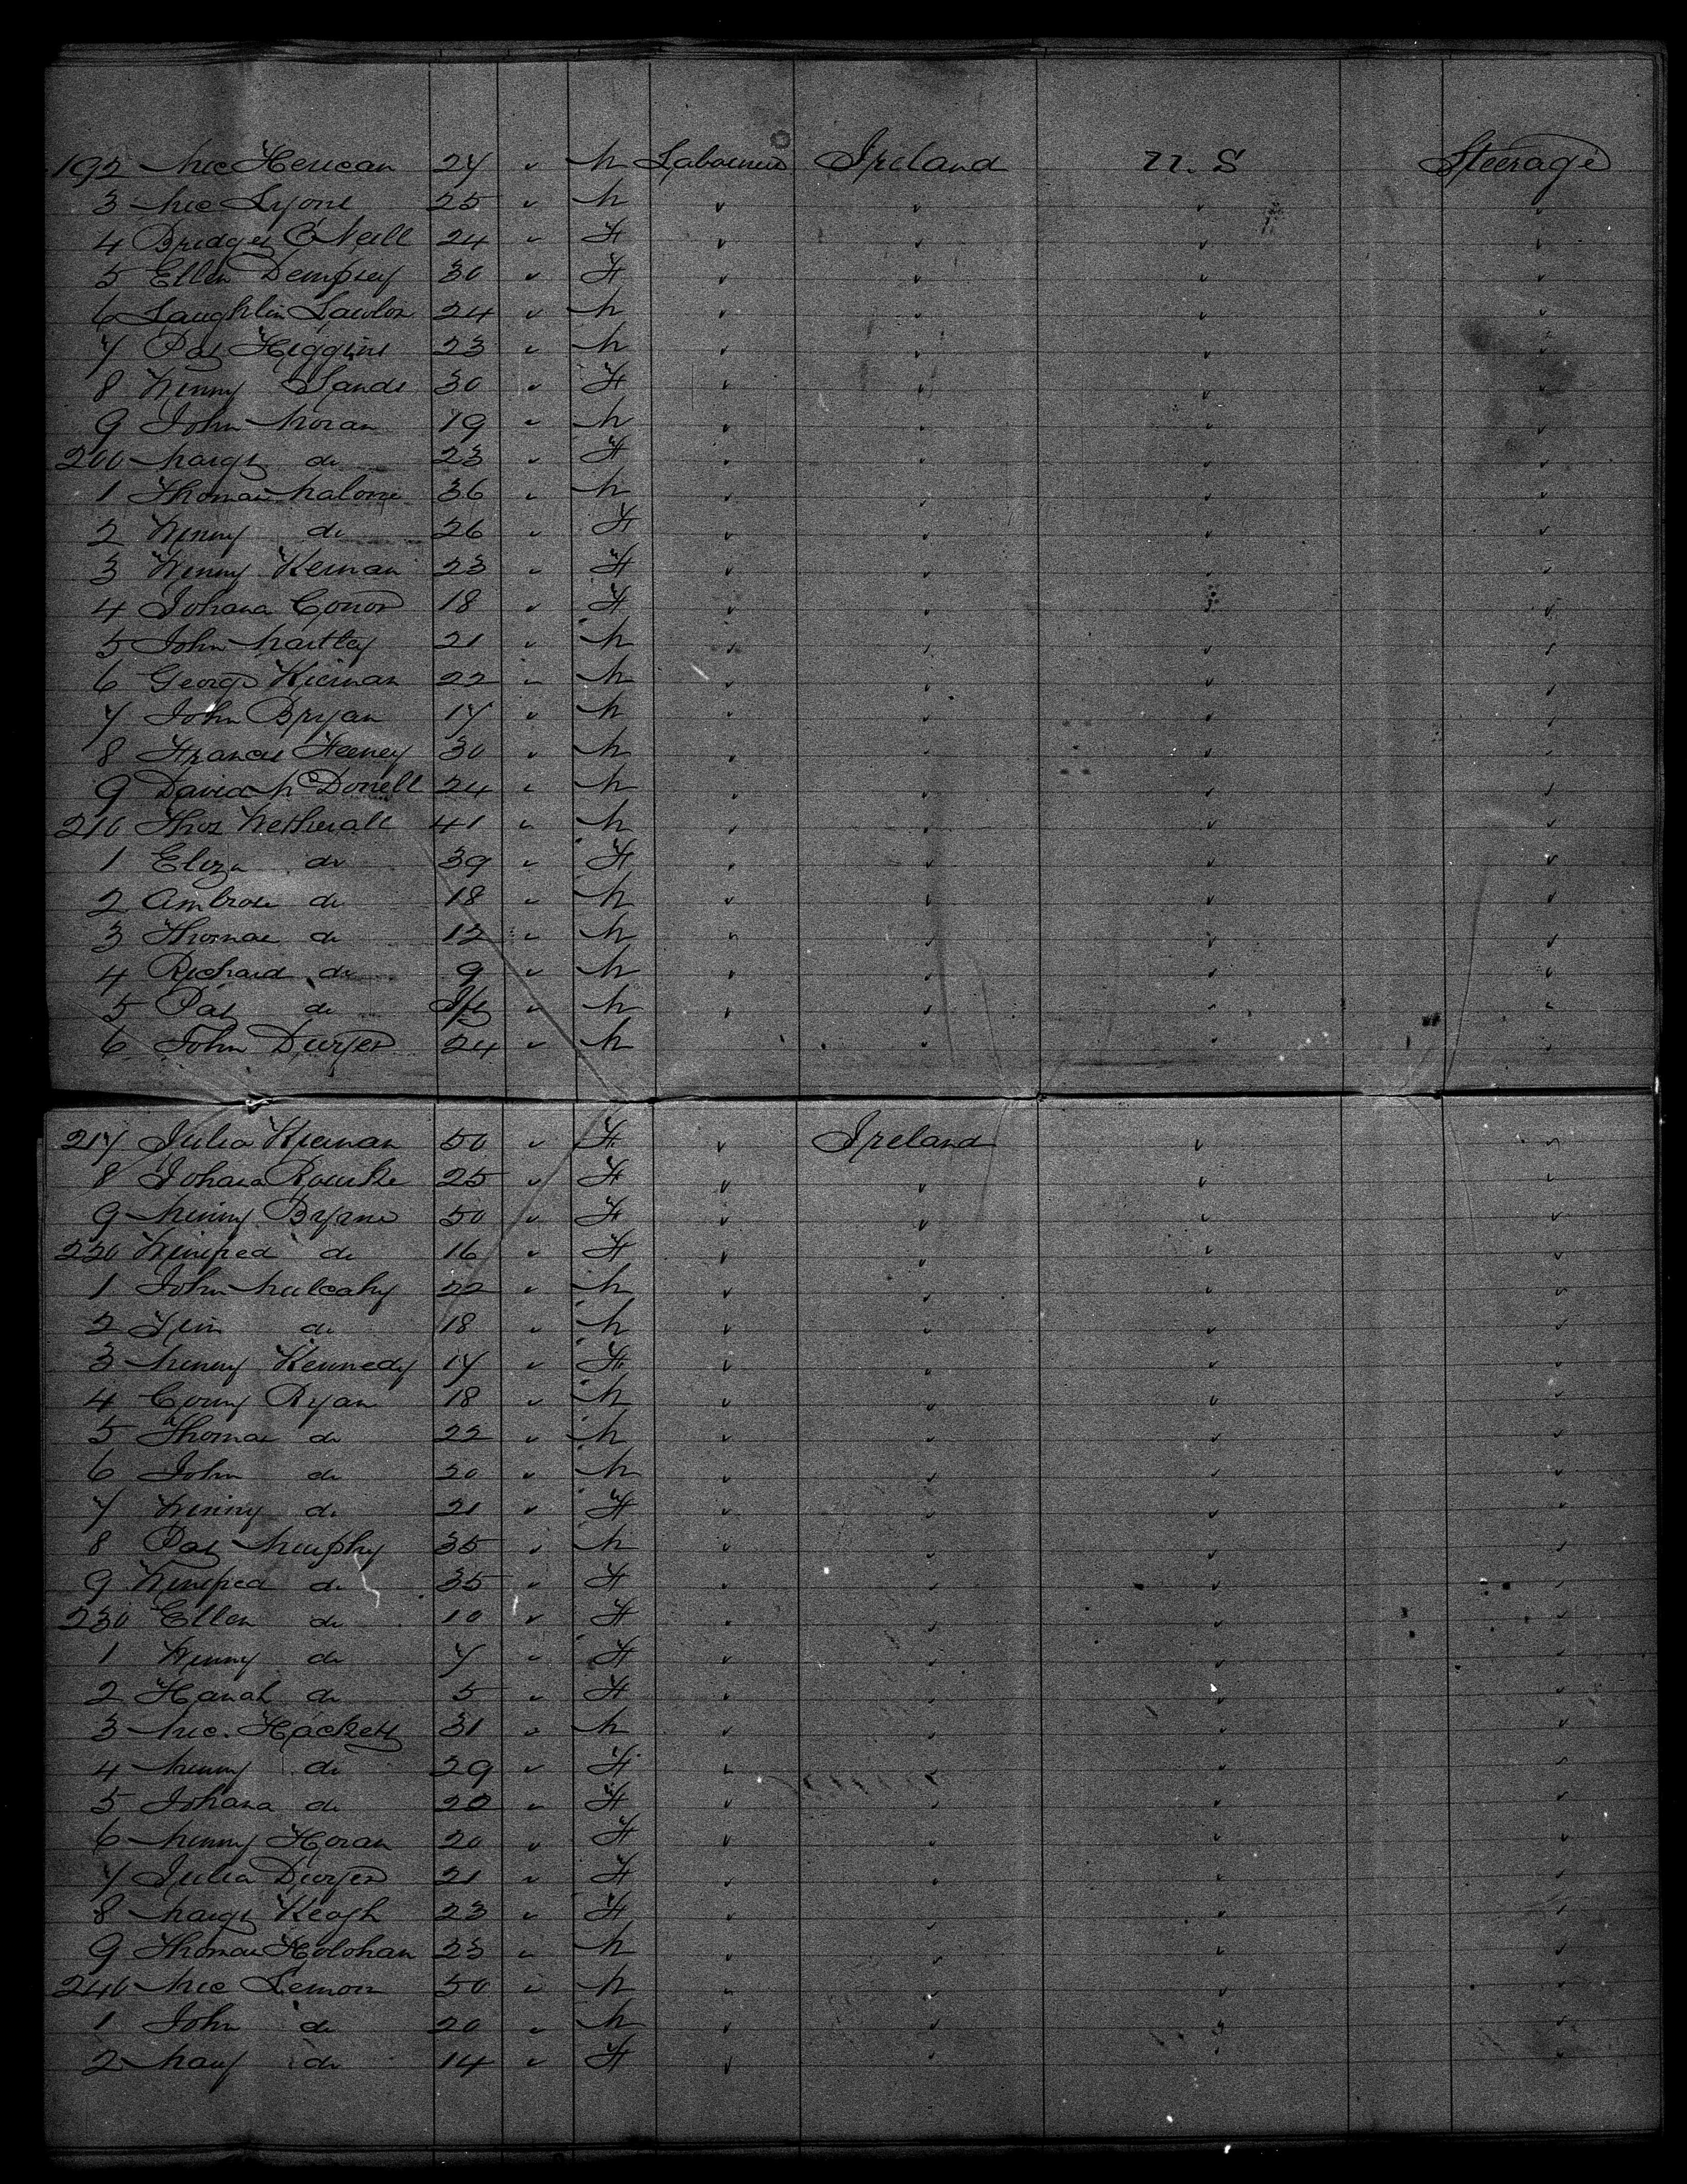 192 Mic Herican 24 " M Labourers Ireland U. S Steerage
3 Mic Lyons 25 " M " " " "
4 Bridget O'Neill 24 " F " " " "
5 Ellen Dempsey 30 " F " " " "
6 Laughlin Lawlor 24 " M " " " "
7 Pat Higgins 23 " M " " " "
8 Winny Sands 30 " F " " " "
9 John Moran 19 " M " " " "
200 Margt do 23 " F " " " "
1 Thomas Malone 36 " M " " " "
2 Winny do 26 " F " " " "
3 Winny Kernan 23 " F " " " "
4 Johana Conor 18 " F " " " "
5 John Martley 21 " M " " " "
6 George Kiernan 22 " M " " " "
7 John Bryan 17 " M " " " "
8 Francis Feeney 30 " M " " " "
9 David McDonell 24 " M " " " "
210 Thos Wetherall 41 " M " " " "
1 Eliza do 39 " F " " " "
2 Ambrose do 18 " M " " " "
3 Thomas do 12 " M " " " "
4 Richard do 9 " M " " " "
5 Pat do Inft " M " " " "
6 John Dwyer 24 " M " " "
217 Julia Kiernan 50 " F " Ireland " "
8 Johana Rourke 25 " F " " " "
9 Minny Byrne 50 " F " " " "
220 Winifred do 16 " F " " " "
1 John Mulcahy 22 " M " " " "
2 do 18 " M " " " "
3 Minny Kennedy 17 " F " " " "
4 Corny Ryan 18 " M " " " "
5 Thomas do 22 " M " " " "
6 John do 20 " M " " " "
7 Winny do 21 " F " " " "
8 Pat Murphy 35 " M " " " "
9 Winifred do 35 " F " " " "
230 Ellen do 10 " F " " " "
1 Winny do 7 " F " " " "
2 Hanah do 5 " F " " " "
3 Mic. Hackett 31 " M " " " "
4 Minny do 29 " F " " " "
5 Johana do 20 " F " " " "
6 Minny Horan 20 " F " " " "
7 Julia Dwyer 21 " F " " " "
8 Margt Keogh 23 " F " " " "
9 Thomas Holohan 23 " M " " " "
240 Mic Lemon 50 " M " " " "
1 John do 20 " M " " " "
2 Mary do 14 " F " " " "